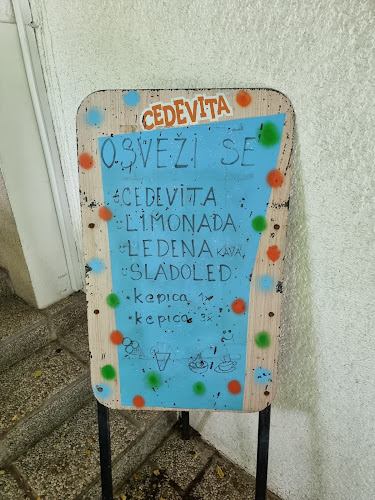 CEDEVITA
OSVEŽI SE
CEDEVITA
LIMONADA
LEDENA KAVA
SLADOLED:
• kepica 1x
• kepica 3x